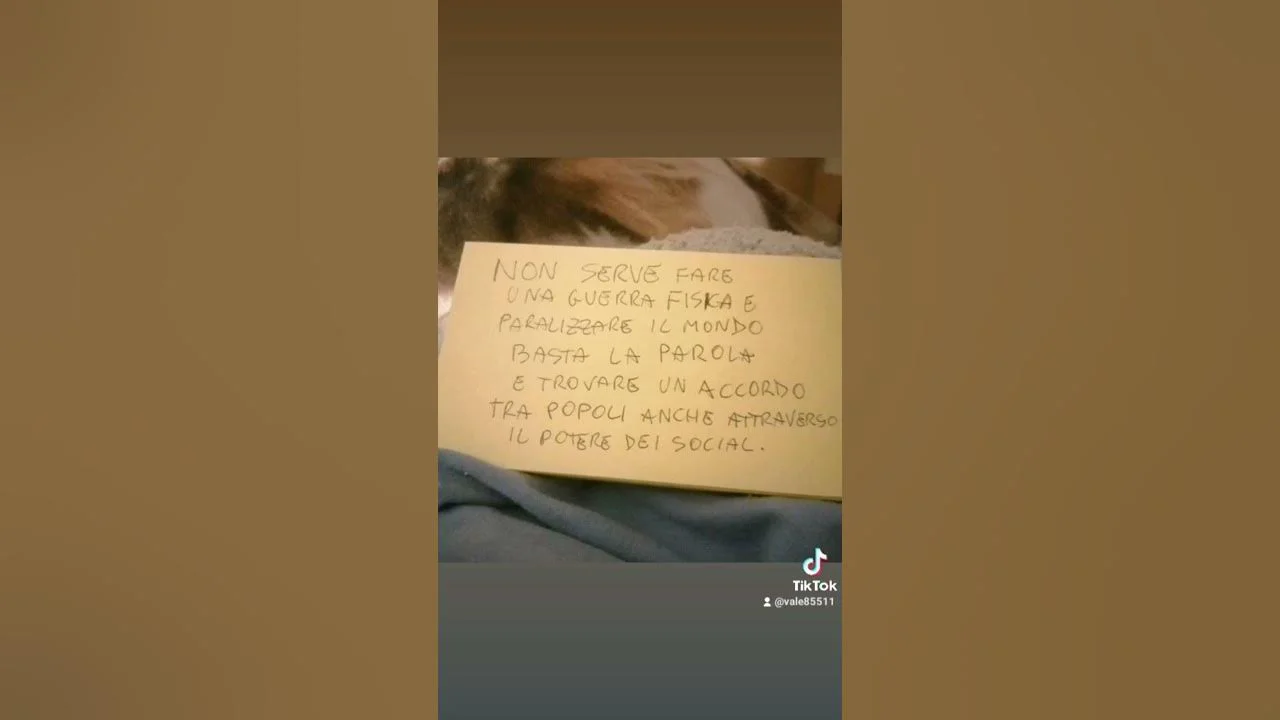 NON SERVE FARE
UNA GUERRA FISICA E
PARALIZZARE IL MONDO
BASTA LA PAROLA
E TROVARE UN ACCORDO
TRA POPOLI ANCHE ATTRAVERSO
IL POTERE DEI SOCIAL.
TikTok
@vale85511